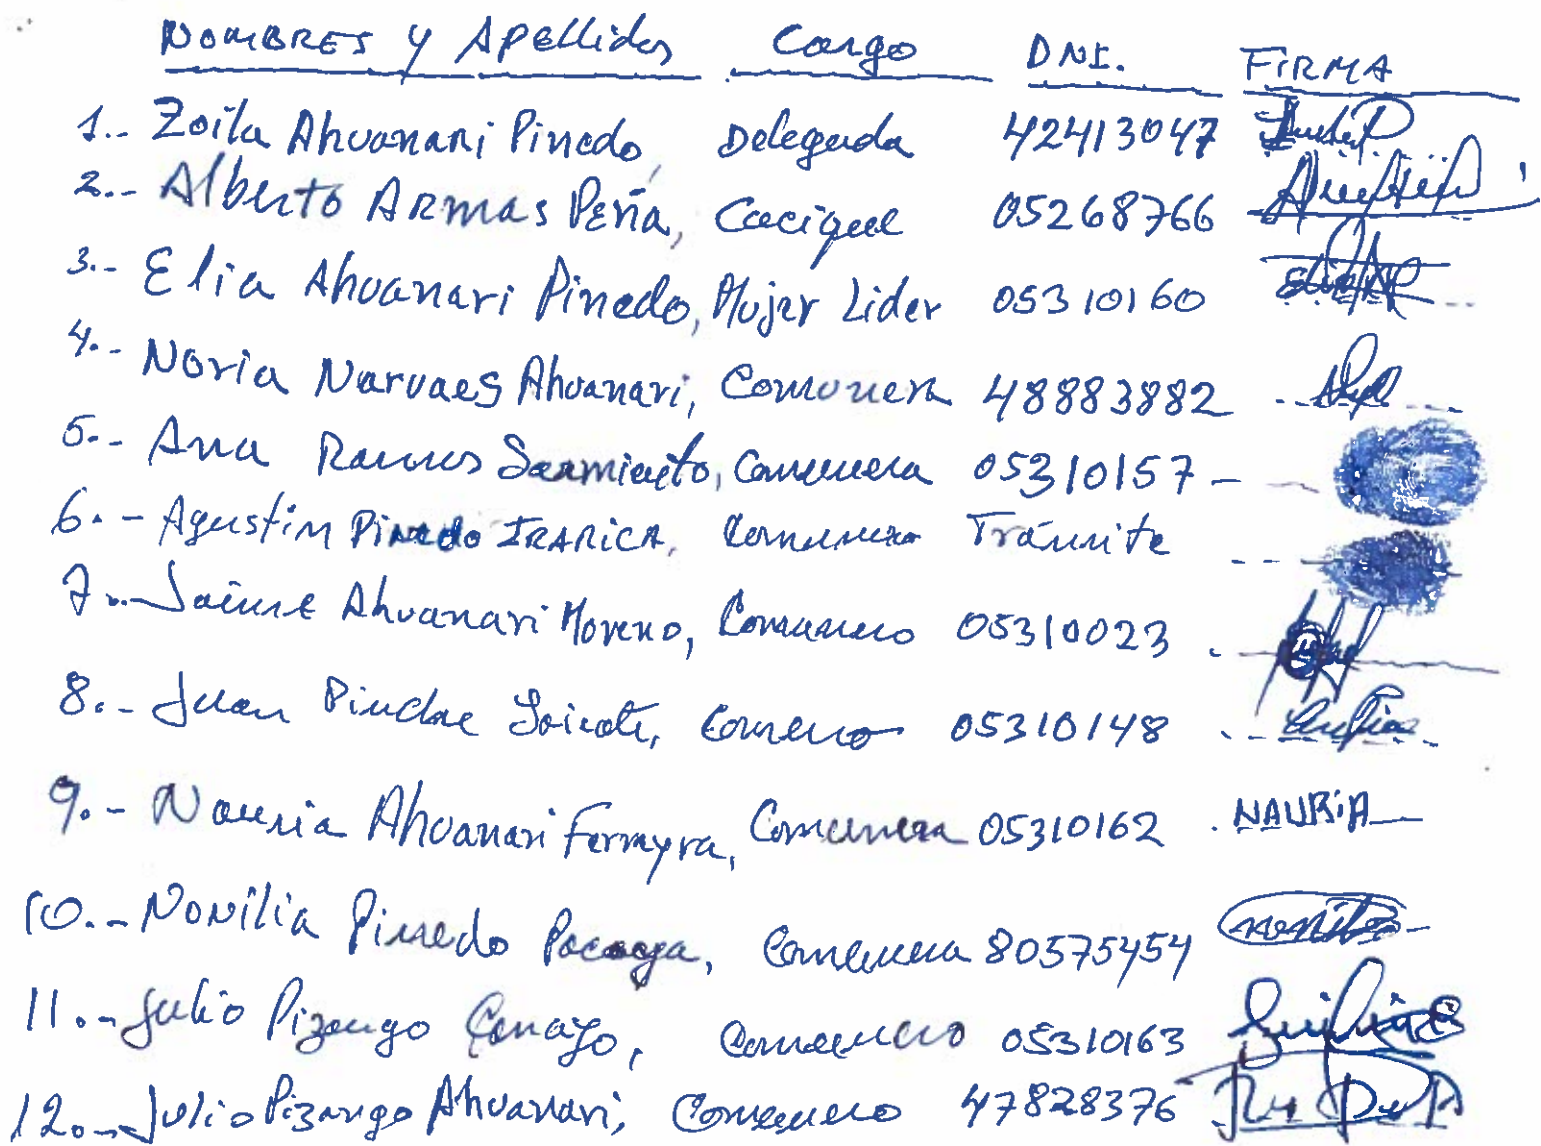 NOMBRES y Apellidos Cargo DNI. FIRMA
1.- Zoila Ahuanari Pinedo, Delegada 42413047
2.- Alberto ARMAS Peña, Cacique 05268766
3.- Elia Ahuanari Pinedo, Mujer Lider 05310160
4.- Noria Narvaes Ahuanari, Comunera 48883882
5.- Ana Ramos Sarmiento, Comunera 05310157 -
6.- Agustin Pinedo IRARICA, Comunero Tramite
7.- Jaime Ahuanari Moreno, Comunero 05310023
8.- Juan 05310148
9.- Nauria Ahuanari Ferreyra, Comunera 05310162 NAURiA
10.- Nonilia Pinedo Pacaya, Comunera 80575454
11.- Julio Pizango Comunero 05310163
12.- Julio Pizango Ahuanari, Comunero 47828376